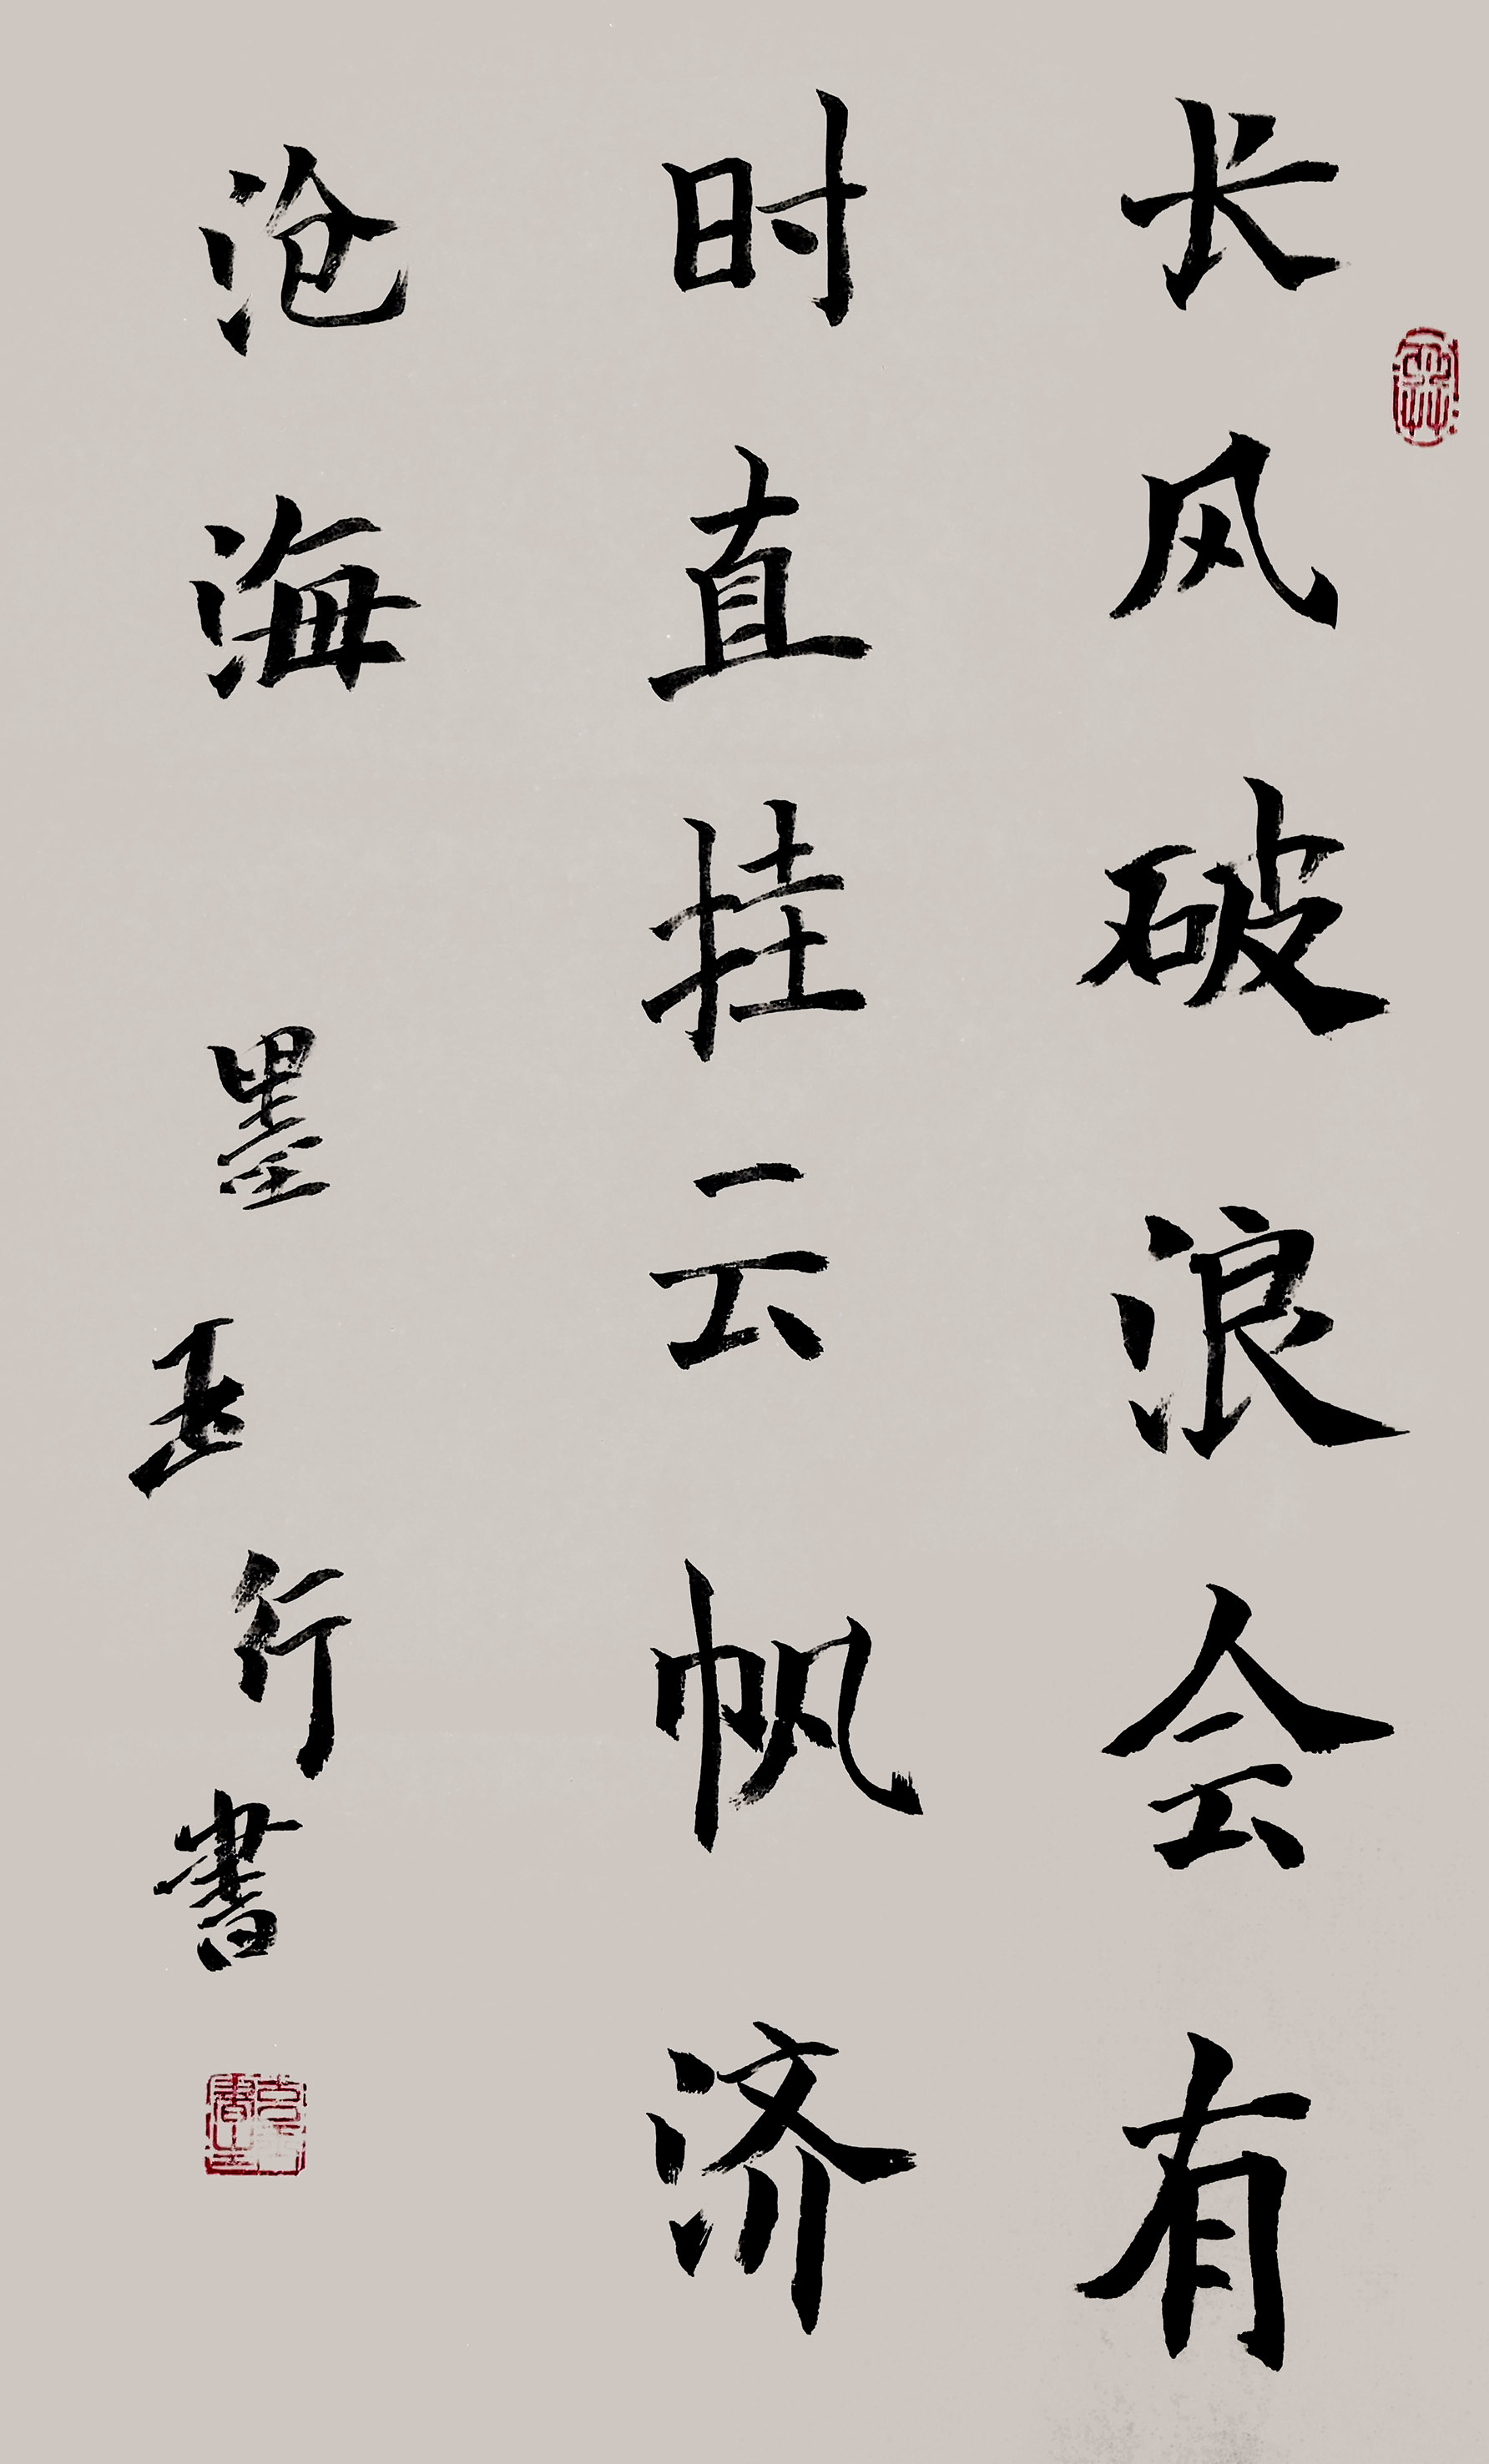 长风破浪会有
时直挂云帆济
沧海
墨玉行書